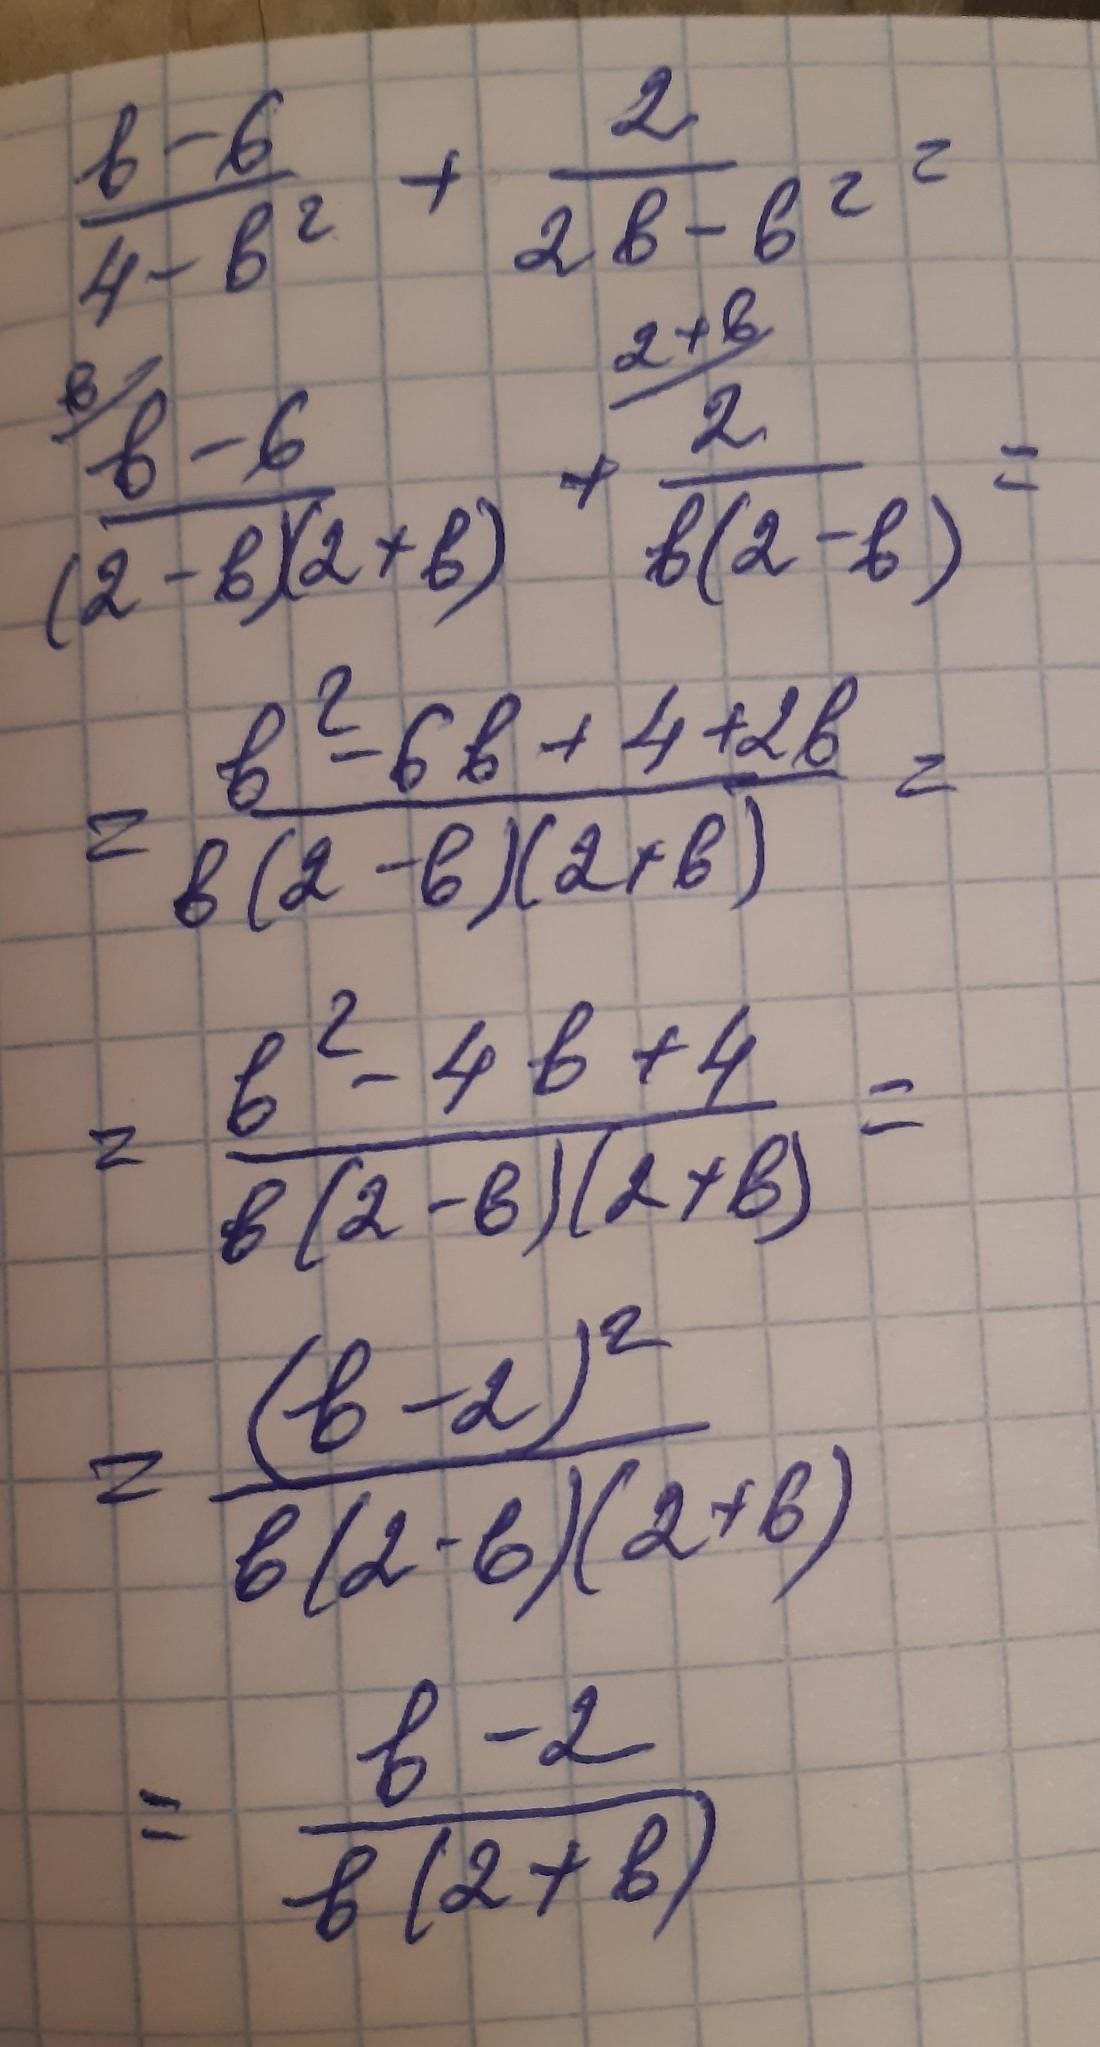 (b-6)/(4-b²) + 2/(2b-b²) =
b/ (b-6)/((2-b)(2+b)) + 2+b/ 2/(b(2-b)) =
= (b²-6b+4+2b)/(b(2-b)(2+b)) =
= (b²-4b+4)/(b(2-b)(2+b)) =
= (b-2)²/(b(2-b)(2+b))
= (b-2)/(b(2+b))